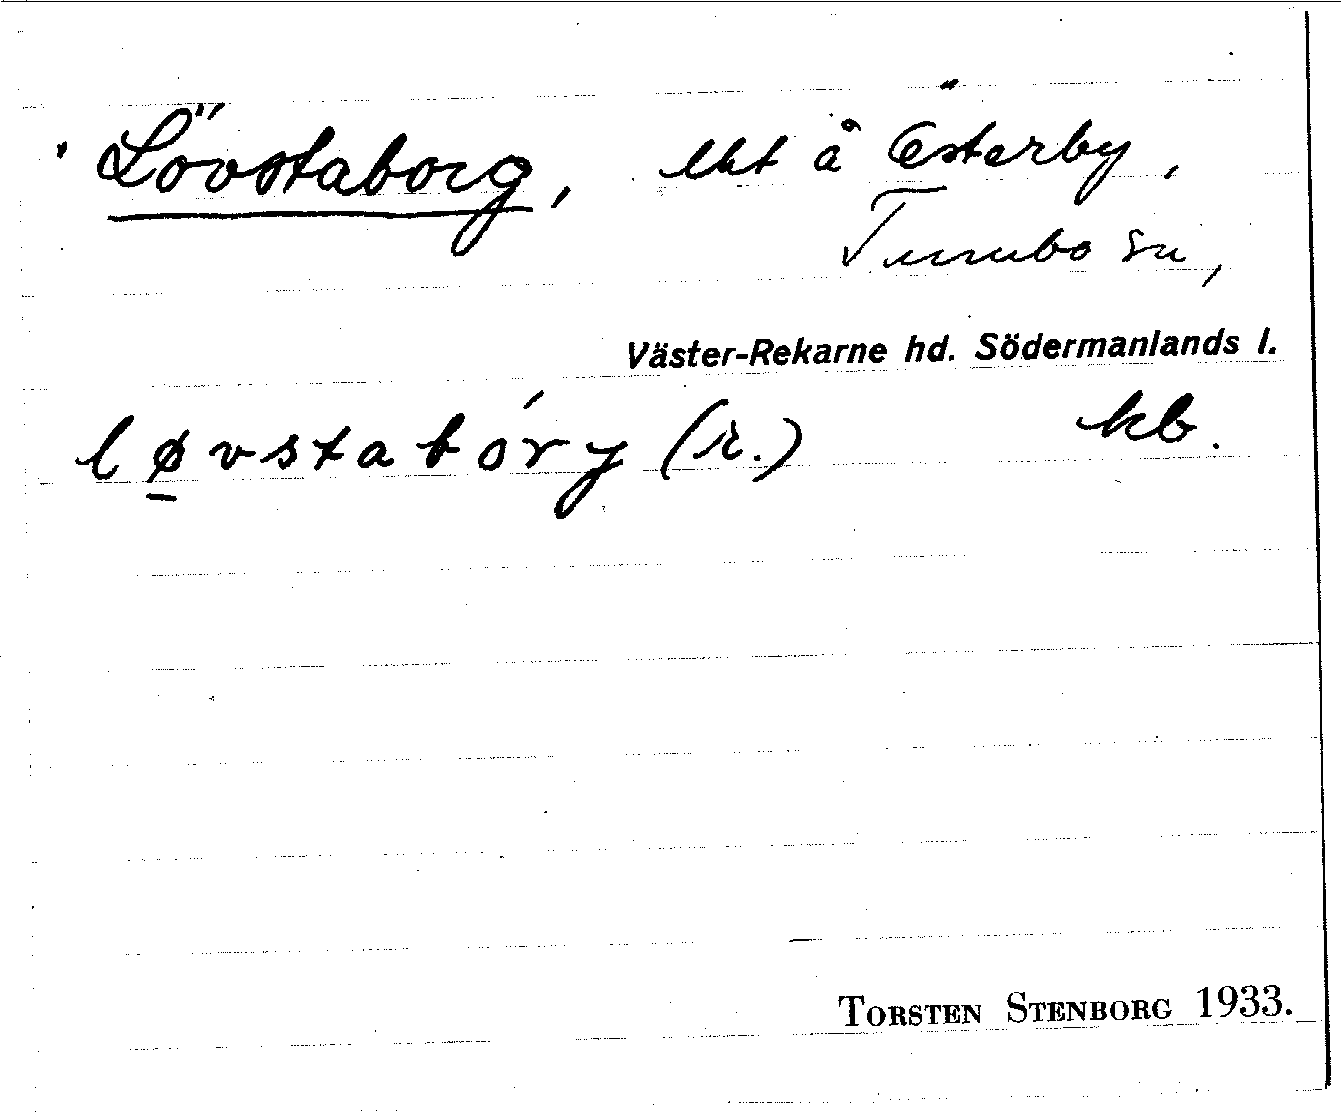 Lövstaborg, lht å Österby,
Tumbo sn,
Väster-Rekarne hd. Södermanlands l.
lø̲vstabóry (r.) kb.
TORSTEN STENBORG 1933.